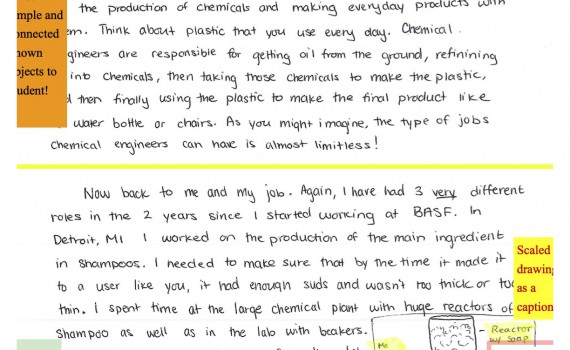 the production of chemicals and making everyday products with
Think about plastic that you use every day. Chemical
are responsible for getting oil from the ground, refinining
into chemicals, then taking those chemicals to make the plastic,
then finally using the plastic to make the final product like
water bottle or chairs. As you might imagine, the type of jobs
Chemical engineers can have is almost limitless!
Now back to me and my job. Again, I have had 3 very different
roles in the 2 years since I started working at BASF. In
Detroit, MI I worked on the production of the main ingredient
in Shampoos. I needed to make sure that by the time it made it
to a user like you, it had enough suds and wasn't too thick or too
thin. I spent time at the large chemical plant with huge reactors of
Shampoo as well as in the lab with beakers.
Scaled
drawing
as a
caption
Me
Reactor
w/ soap